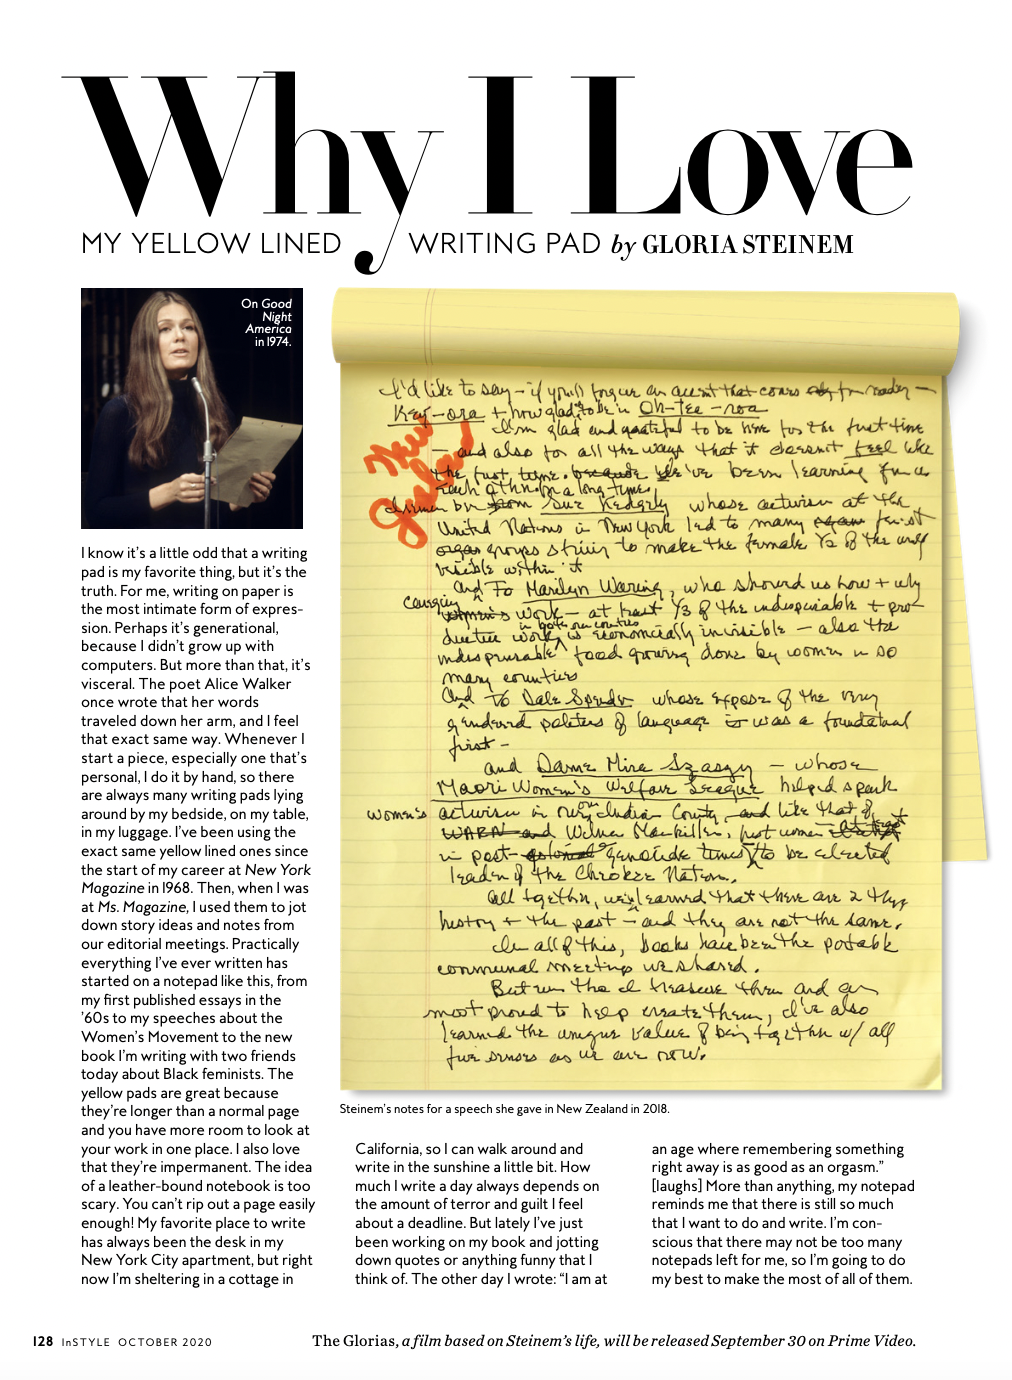 Why I Love
MY YELLOW LINED WRITING PAD by GLORIA STEINEM
On Good
Night
America
in 1974.
I know it's a little odd that a writing
pad is my favorite thing, but it's the
truth. For me, writing on paper is
the most intimate form of expres-
sion. Perhaps it's generational,
because I didn't grow up with
computers. But more than that, it's
visceral. The poet Alice Walker
once wrote that her words
traveled down her arm, and I feel
that exact same way. Whenever I
start a piece, especially one that's
personal, I do it by hand, so there
are always many writing pads lying
around by my bedside, on my table,
in my luggage. I've been using the
exact same yellow lined ones since
the start of my career at New York
Magazine in 1968. Then, when I was
at Ms. Magazine, I used them to jot
down story ideas and notes from
our editorial meetings. Practically
everything I've ever written has
started on a notepad like this, from
my first published essays in the
'60s to my speeches about the
Women's Movement to the new
book I'm writing with two friends
today about Black feminists. The
yellow pads are great because
they're longer than a normal page
and you have more room to look at
your work in one place. I also love
that they're impermanent. The idea
of a leather-bound notebook is too
scary. You can't rip out a page easily
enough! My favorite place to write
has always been the desk in my
New York City apartment, but right
now I'm sheltering in a cottage in
I'd like to say – if you'll forgive an accent that comes from reading –
Key-ora + how glad to be in Oh-tee-roa
I'm glad and grateful to be here for the first time
– and also for all the ways that it doesn't feel like
the first time. because We've been learning from
each other for a long time.
New
Zealand
by from Sue Kedgely whose activism at the
United Nations in New York led to many
organ groups striving to make the female 1/2 of the world
visible within it
And To Marilyn Waring, who showed us how + why
caregiving women's work – at least 1/3 of the indispensable + pro-
ductive work in both our countries is economically invisible – also the
indispensable food growing done by women in so
many countries
And To Dale Spender whose expose of the very
gendered politics of language is was a foundational
first –
and Dame Mira Szaszy – whose
Maori Women's Welfare League helped spark
women's activism in our Indian County, and like that of
WARN and Wilma Mankiller, first woman at least
in post- colonial genocide times to be elected
leader of the Cherokee Nation.
All together, we've learned that there are 2 things
history + the past – and they are not the same.
In all of this, books have been the portable
communal meetings we shared.
But even tho I treasure them and am
most proud to help create them, I've also
learned the unique value of being together w/ all
five senses as we are now.
Steinem's notes for a speech she gave in New Zealand in 2018.
California, so I can walk around and
write in the sunshine a little bit. How
much I write a day always depends on
the amount of terror and guilt I feel
about a deadline. But lately I've just
been working on my book and jotting
down quotes or anything funny that I
think of. The other day I wrote: "I am at
an age where remembering something
right away is as good as an orgasm."
[laughs] More than anything, my notepad
reminds me that there is still so much
that I want to do and write. I'm con-
scious that there may not be too many
notepads left for me, so I'm going to do
my best to make the most of all of them.
128 InSTYLE OCTOBER 2020
The Glorias, a film based on Steinem's life, will be released September 30 on Prime Video.